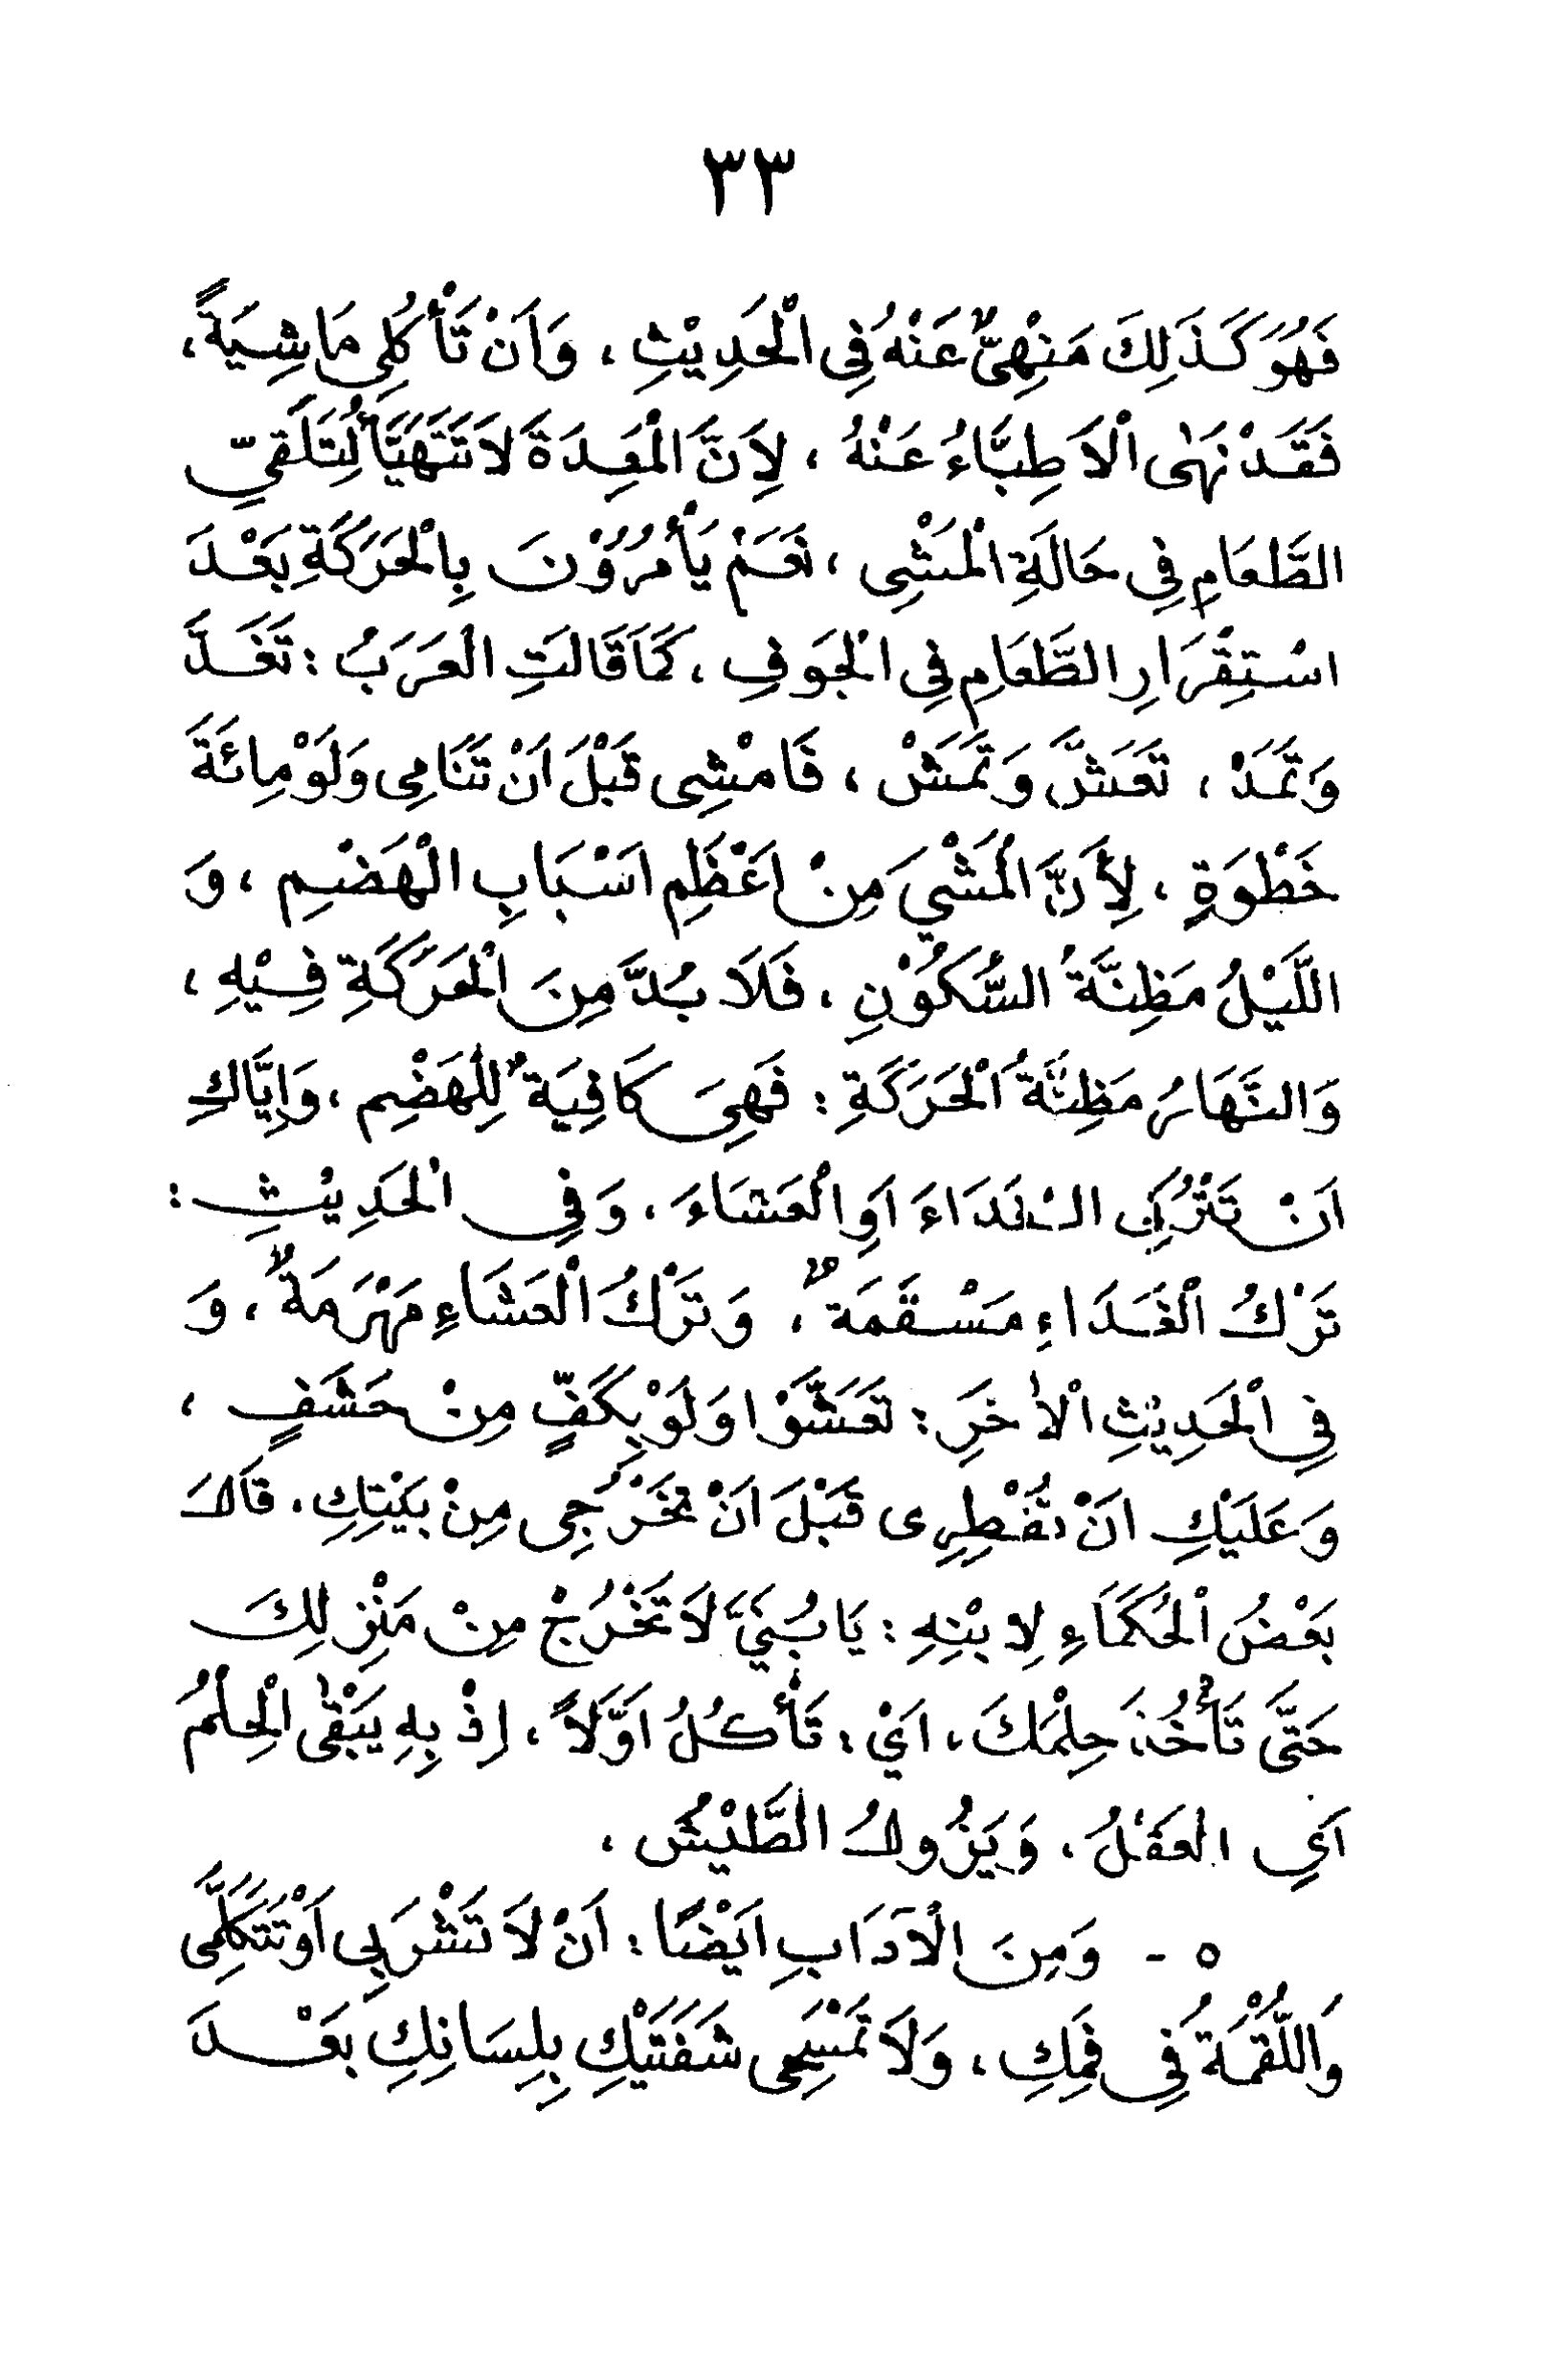 ٣٣
فَهُوَ كَذَلِكَ مَنْهِيٌّ عَنْهُ فِى الْحَدِيْثِ ، وَاَنْ تَأْكُلِى مَاشِيَةً،
فَقَدْ نَهٰى الْاَطِبَّاءُ عَنْهُ ، لِاَنَّ الْمَعِدَةَ لَاتَتَهَيَّأُ لِتَلَقِيِّ
الطَّعَامِ فِى حَالَةِ الْمَشْىِ ، نَعَمْ يَأْمُرُوْنَ بِالْحَرَكَةِ بَعْدَ
اسْتِقْرَارِ الطَّعَامِ فِى الْجَوَفِ ، كَمَا قَالَتِ الْعَرَبُ : تَغَدَّ
وَتَمَدْ ، تَعَشَّ وَتَمَشْ ، فَامْشِى قَبْلَ اَنْ تَنَامِى وَلَوْ مِائَةَ
خَطْوَةٍ ، لِأَنَّ الْمَشْيَ مِنْ اَعْظَمِ اَسْبَابِ الْهَضْمِ ، وَ
اللَّيْلُ مَظِنَّةُ السُّكُوْنِ ، فَلَا بُدَّ مِنَ الْحَرَكَةِ فِيْهِ ،
وَالنَّهَارُ مَظِنَّةُ الْحَرَكَةِ : فَهِيَ كَافِيَةٌ لِلْهَضْمِ ، وَاِيَّاكِ
اَنْ تَتْرُكِى الْغَدَاءَ اَوِ الْعَشَاءَ ، وَفِى الْحَدِيْثِ :
تَرْكُ الْغَدَاءِ مَسْقَمَةٌ ، وَتَرْكُ الْعَشَاءِ مَهْرَمَةٌ ، وَ
فِى الْحَدِيْثِ الْاٰخَرِ : تَعَشَّوْا وَلَوْ بِكَفٍّ مِنْ حَشَفٍ ،
وَعَلَيْكِ اَنْ تُفْطِرِى قَبْلَ اَنْ تَخْرُجِى مِنْ بَيْتِكِ . قَالَ
بَعْضُ الْحُكَمَاءِ لِابْنِهِ : يَا بُنَيَّ لَا تَخْرُجْ مِنْ مَنْزِلِكَ
حَتَّى تَأْخُذَ حِلْمَكَ ، اَيْ : تَأْكُلُ اَوَّلًا ، اِذْ بِهِ يَبْقٰى الْحِلْمُ
اَيِ الْعَقْلُ ، وَيَزُولُ الطَّيْشُ ،
٥ - وَمِنَ الْآدَابِ اَيْضًا : اَنْ لَا تَشْرَبِى اَوْ تَتَكَلَّمِى
وَاللُّقْمَةُ فِى فَمِكِ ، وَلَا تَمْسَحِى شَفَتَيْكِ بِلِسَانِكِ بَعْدَ